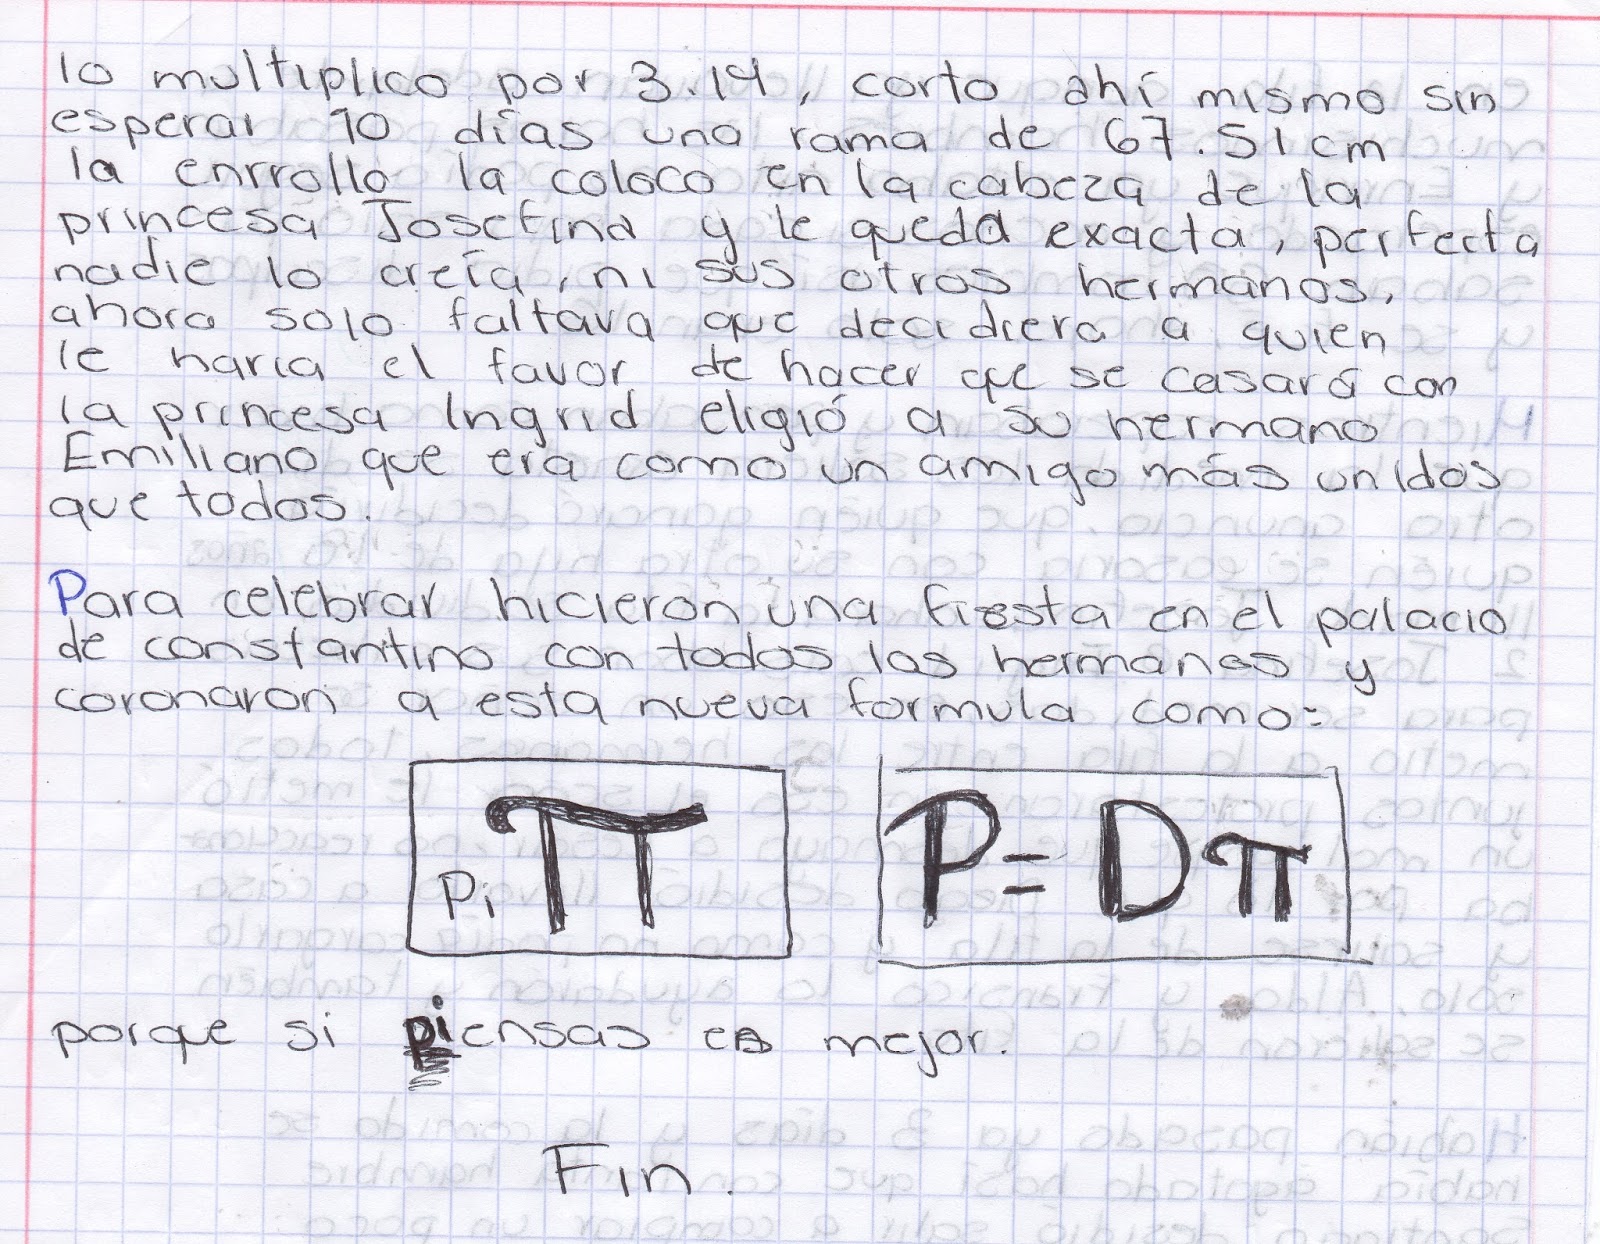 lo multiplico por 3.14, corto ahí mismo sin
esperar 10 días una rama de 67.51 cm
la enrrollo la coloco en la cabeza de la
princesa Josefina y le queda exacta, perfecta
nadie lo creía, ni sus otros hermanos,
ahora solo faltava que decidiera a quien
le haria el favor de hacer que se casará con
la princesa Ingrid eligió a su hermano
Emiliano que era como un amigo más unidos
que todos.
Para celebrar hicieron una fiesta en el palacio
de constantino con todos los hermanos y
coronaron a esta nueva formula como:
Pi π
P= Dπ
porque si piensas es mejor.
Fin.